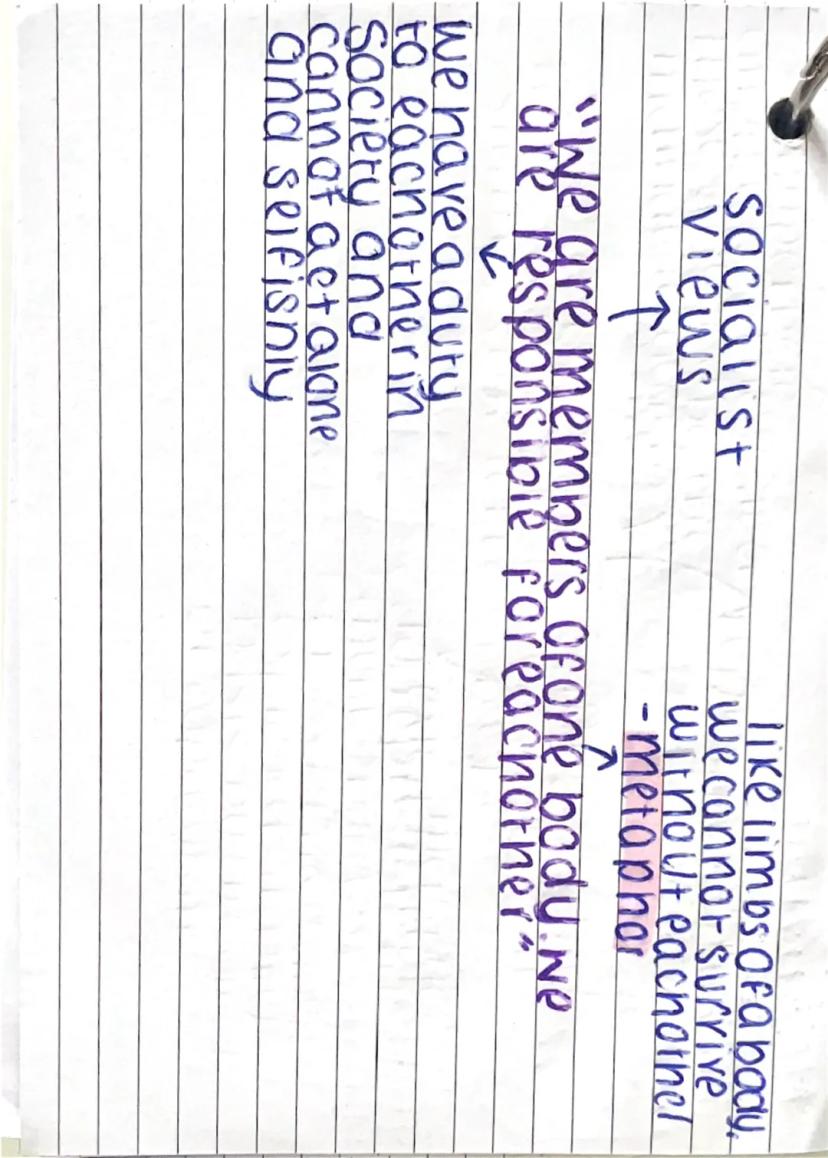 socialist
views
like limbs of a body,
we cannot survive
without eachother
- metaphor
"We are members of one body. We
are responsible for eachother"
we have a duty
to eachother in
society and
cannot act alone
and selfishly